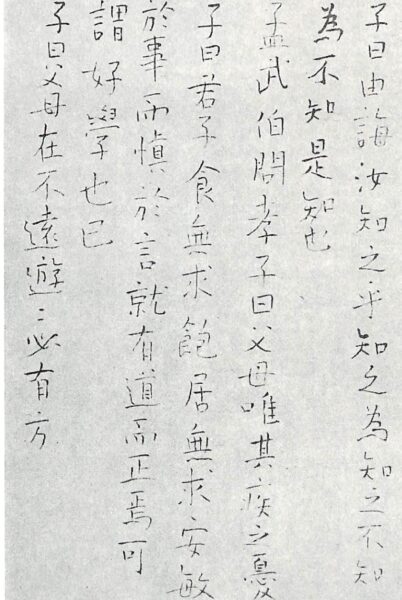 子曰由誨汝知之乎知之為知之不知
為不知是知也
孟武伯問孝子曰父母唯其疾之憂
子曰君子食無求飽居無求安敏
於事而慎於言就有道而正焉可
謂好學也已
子曰父母在不遠遊〻必有方